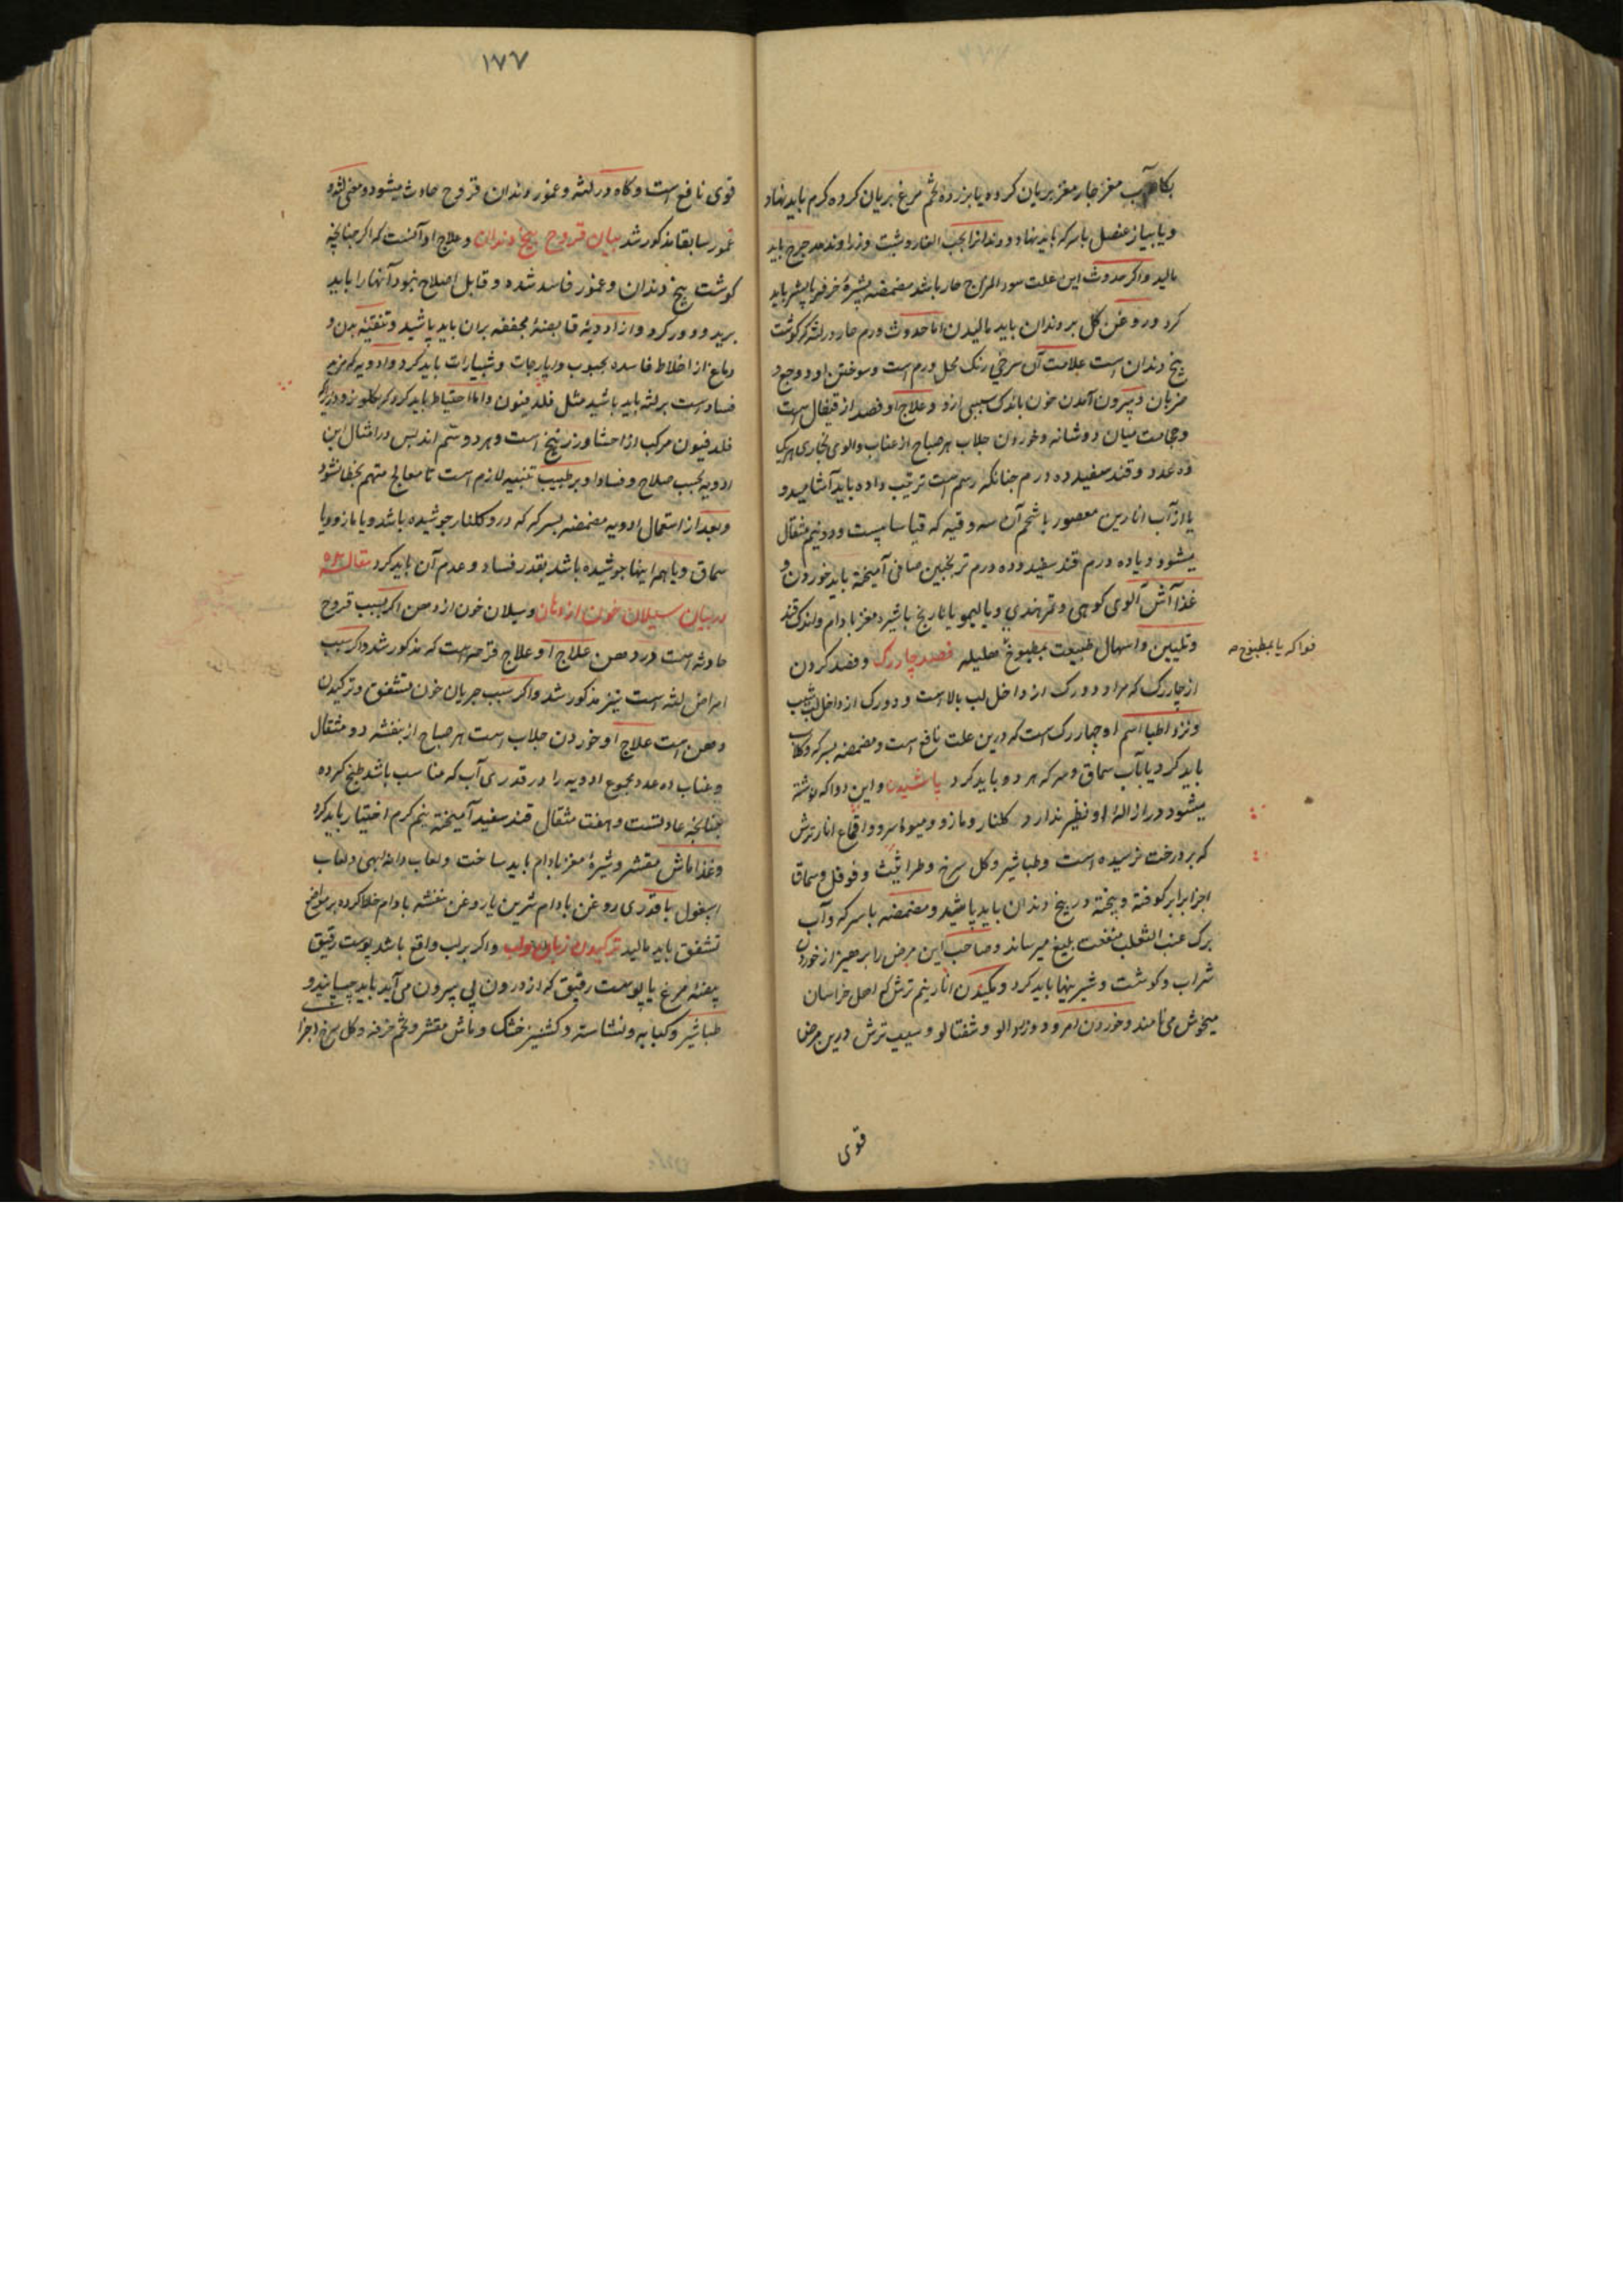 بکلاب مغز جار مغز بریان کرده یا بزرده تخم مرغ بریان کرده کرم باید نهاد
و یا پیاز عنصل با سرکه باید نهاد و دندانرا بحب الغار و شبت و زراوند مدحرج باید
مالید و اکر حدوث این علت سوء المزاج حار باشد مضمضه بشیرهٔ خرفه یا بشیر باید
کرد و روغن کل بر دندان باید مالیدن اما حدوث ورم حار در لثه که کوشت
بیخ دندان است علامت آن سرخی رنک محل ورم است و سوختن او و وجع و
ضربان و بیرون آمدن خون باندک سببی ازو و علاج او فصد از قیفال است
و حجامت میان دو شانه و خوردن جلاب هر صباح از عناب و آلوی بخاری هریک
ده عدد و قند سفید ده درم جنانکه رسم است ترتیب داده باید آشامید و
یا از آب انارین معصور با شحم آن سه وقیه که قیاسا بیست و دو نیم مثقال
میشود و یا ده درم قند سفید و ده درم ترنجبین صافی آمیخته باید خوردن و
غذا آش آلوی کوهی و تمر هندی و یا لیمو یا نارنج با شیره مغز بادام و اندک قند
و تلیین و اسهال طبیعت بمطبوخ هلیله فصد چار رک و فصد کردن
فواکه یا بمطبوخ
از چار رک که مراد دو رک از داخل لب بالاست و دو رک از داخل لب شیب
و نزد اطبا اسم او چهار رک است که درین علت نافع است و مضمضه بسرکه و کلاب
باید کرد یا بآب سماق و سرکه هر دو باید کرد پاشیدن و این دوا که نوشته
میشود در ازالهٔ او نظیر ندارد کلنار و مازو و میوهٔ سرو و اقماع انار ترش
که بر درخت نرسیده است و طباشیر و کل سرخ و طراثیث و فوفل و سماق
اجزا برابر کوفته و پخته در بیخ دندان باید پاشید و مضمضه با سرکه و آب
برک عنب الثعلب منفعت بلیغ میرساند و صاحب این مرض را پرهیز از خوردن
شراب و کوشت و شیرینیها باید کرد و مکیدن انار نیم ترش که اهل خراسان
میخوش می نامند و خوردن امرود و زردالو و شفتالو و سیب ترش درین مرض
قوی
۱۷۷
قوی نافع است و کاه در لثه و عمور دندان قروح حادث میشود و معنی لثه و
عمور سابقا مذکور شد بیان قروح بیخ دندان و علاج او آنست که اکر جنانچه
کوشت بیخ دندان و عمور فاسد شده و قابل اصلاح نبود آنها را باید
برید و دور کرد و از ادویهٔ قابضهٔ مجففه بران باید پاشید و تنقیهٔ بدن و
دماغ از اخلاط فاسده بحبوب و ایارجات و شبیارات باید کرد و ادویه که مزیل
فساد است بر لثه باید پاشید مثل فلدفیون و اما احتیاط باید کرد که بکلو نرود زیرا که
فلدفیون مرکب از احشا و زرنیخ است و هر دو سم اند پس در امثال این
ادویه بحسب صلاح و فساد او بر طبیب تنبیه لازم است تا معالج متهم بخطا نشود
و بعد از استعمال ادویه مضمضه بسرکه که درو کلنار جوشیده باشد و یا مازو و یا
سماق و یا همه اینها جوشیده باشد بقدر فساد و عدم آن باید کرد مقاله
در بیان سیلان خون از دهان و سیلان خون از دهن اکر بسبب قروح
حادثه است در دهن علاج او علاج قرحه است که مذکور شد و اکر سبب
امراض لثه است نیز مذکور شد و اکر سبب جریان خون تشقق و ترکیدن
دهن است علاج او خوردن جلاب است هر صباح از بنفشه دو مثقال
و عناب ده عدد مجموع ادویه را در قدری آب که مناسب باشد طبخ کرده
جنانچه عادتست و هفت مثقال قند سفید آمیخته نیم کرم اختیار باید کرد
و غذا ماش مقشر و شیرهٔ مغز بادام باید ساخت و لعاب دانه بهی و لعاب
اسبغول با قدری روغن بادام شرین یا روغن بنفشه بادام خلط کرده بر مواضع
تشقق باید مالید ترکیدن زبان و لب و اکر بر لب واقع باشد پوست رقیق
بیضهٔ مرغ یا پوست رقیق که از درون نی بیرون می آید باید چسپانید و
طباشیر و کبابه و نشاسته و کشنیز خشک و ماش مقشر و تخم خرفه و کل سرخ اجزا